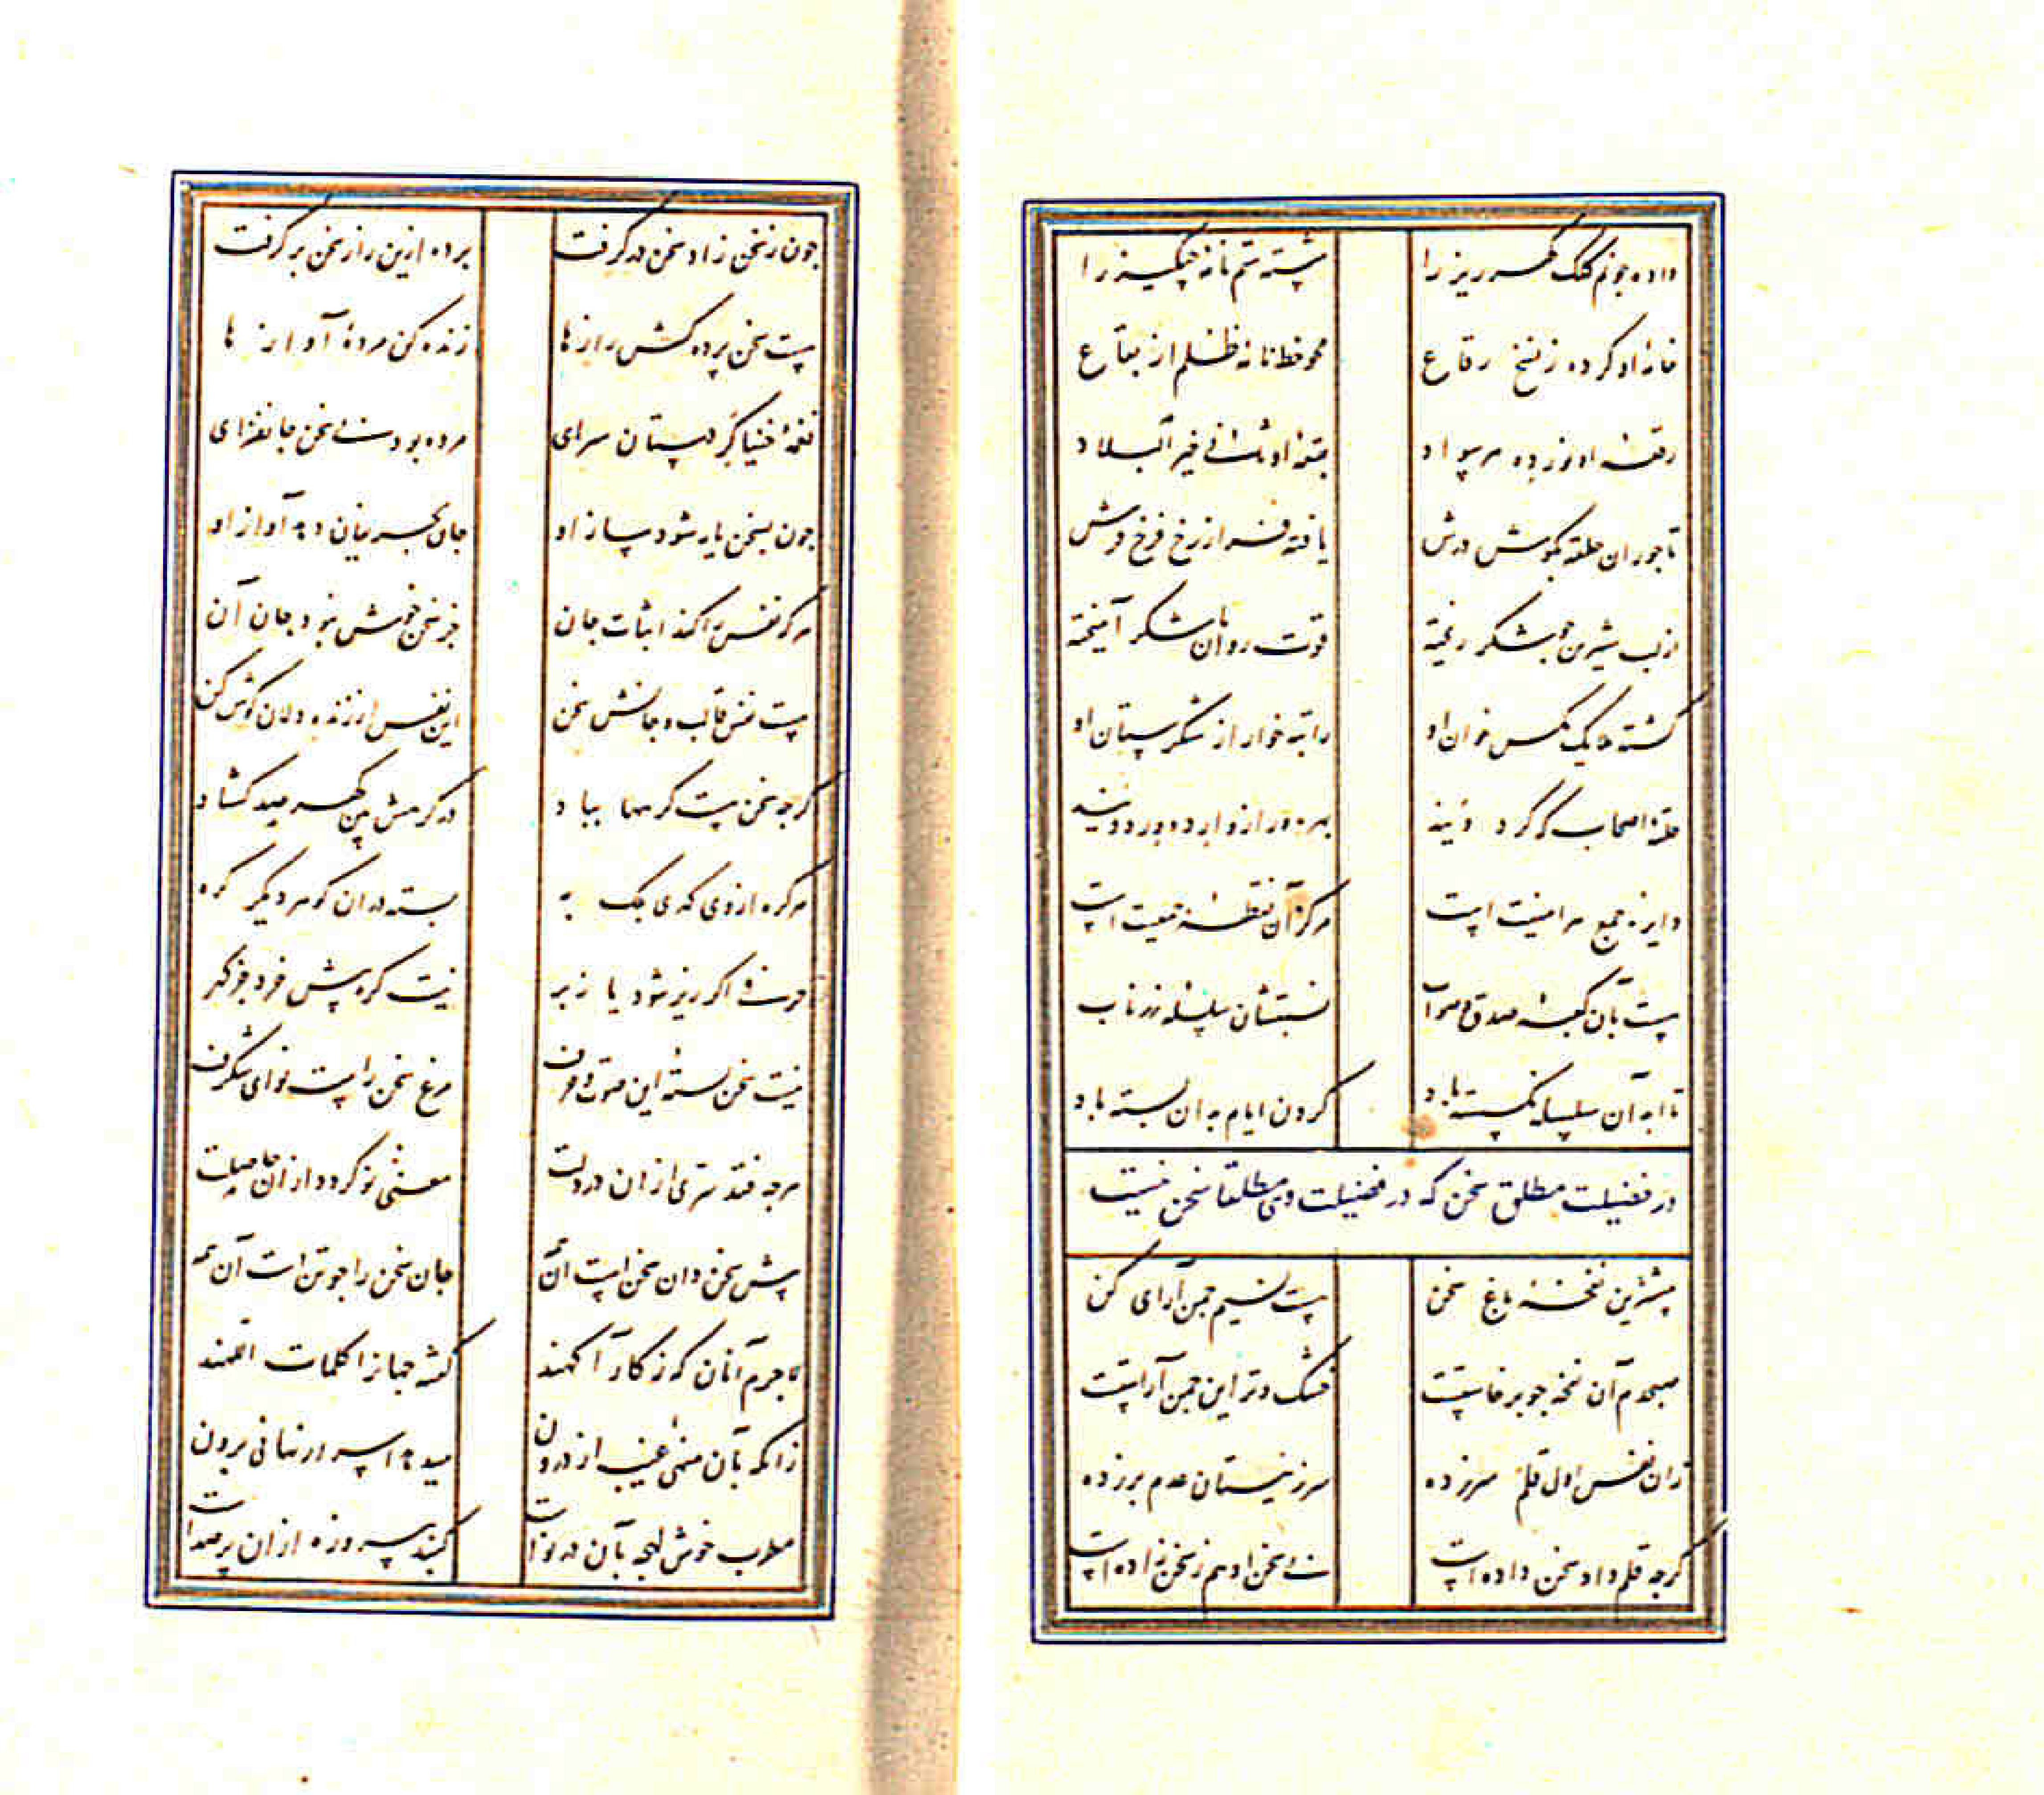 داده جو نم کلک کهر ریز را شسته ستم نامه چنکیز را
خانه او کرده ز نسخ رقاع محو خط نامه ظلم از بقاع
رقعه او نور ده هر سواد بقعه او ثالث خیر البلاد
تاجوران حلقه بکوش درش یافته فر از رخ فرخ فرش
از لب شیرین جو شکر ریخته قوت روان با شکر آمیخته
کشته ملایک مکس خوان او راتبه خوار از شکرستان او
حلقه اصحاب که کرد ویند بهره ور از وارد و ورد ویند
دایره جمع هر امنیت است مرکز آن نقطه جمعیت است
هست بآن کعبه صدق و صواب نسبتشان سلسله زر ناب
تا ابد آن سلسله نکسسته باد کردن ایام به ان بسته باد
در فضیلت مطلق سخن که در فضیلت وی مطلقا سخن نیست
پیشترین نفحه باغ سخن هست نسیم جمن آرای کن
صبحدم آن نفحه جو برخاستست خشک و تر این جمن آراستست
زان نفس اول قلم سر زده سر ز نیستان عدم بر زده
کرجه قلم داد سخن داده است نی ز سخن او هم ز سخن زاده است
جون ز سخن زاد سخن در کرفت برده ازین راز سخن بر کرفت
هست سخن پرده کش رازها زنده کن مرده آوازها
نغمه خنیاکر دستان سرای مرده بود بی سخن جانفزای
جون بسخن یار شود ساز او جان بحریفان دهد آواز او
هر که نفس را کند اثبات جان جز سخن خوش نبود جان آن
هست نفس قالب و جانش سخن این نفس از زنده دلان کوش کن
کرجه سخن هست کرهها بباد در کرهش بین کهر صد کشاد
هر کره از وی کمری یک به بسته در ان کوهر دیکر کره
حرف وی اکر زیر شود یا زبر نیست کره پیش خرد جز کهر
نیست سخن بسته این صوت و حرف مرغ سخن راست نوای شکرف
هر جه فتد سری از ان در دلت معنی نو کردد از ان حاصلت
پیش سخن دان سخن است آن همه جان سخن را جو تن است آن همه
لاجرم آنان که ز کار آکهند کفته جهانرا کلمات اللهند
زانکه بآن منهی غیب از درون میدهد اسرار نهانی برون
مطرب خوش لهجه بآن در نواست کنبد پیروزه از ان پر صداست